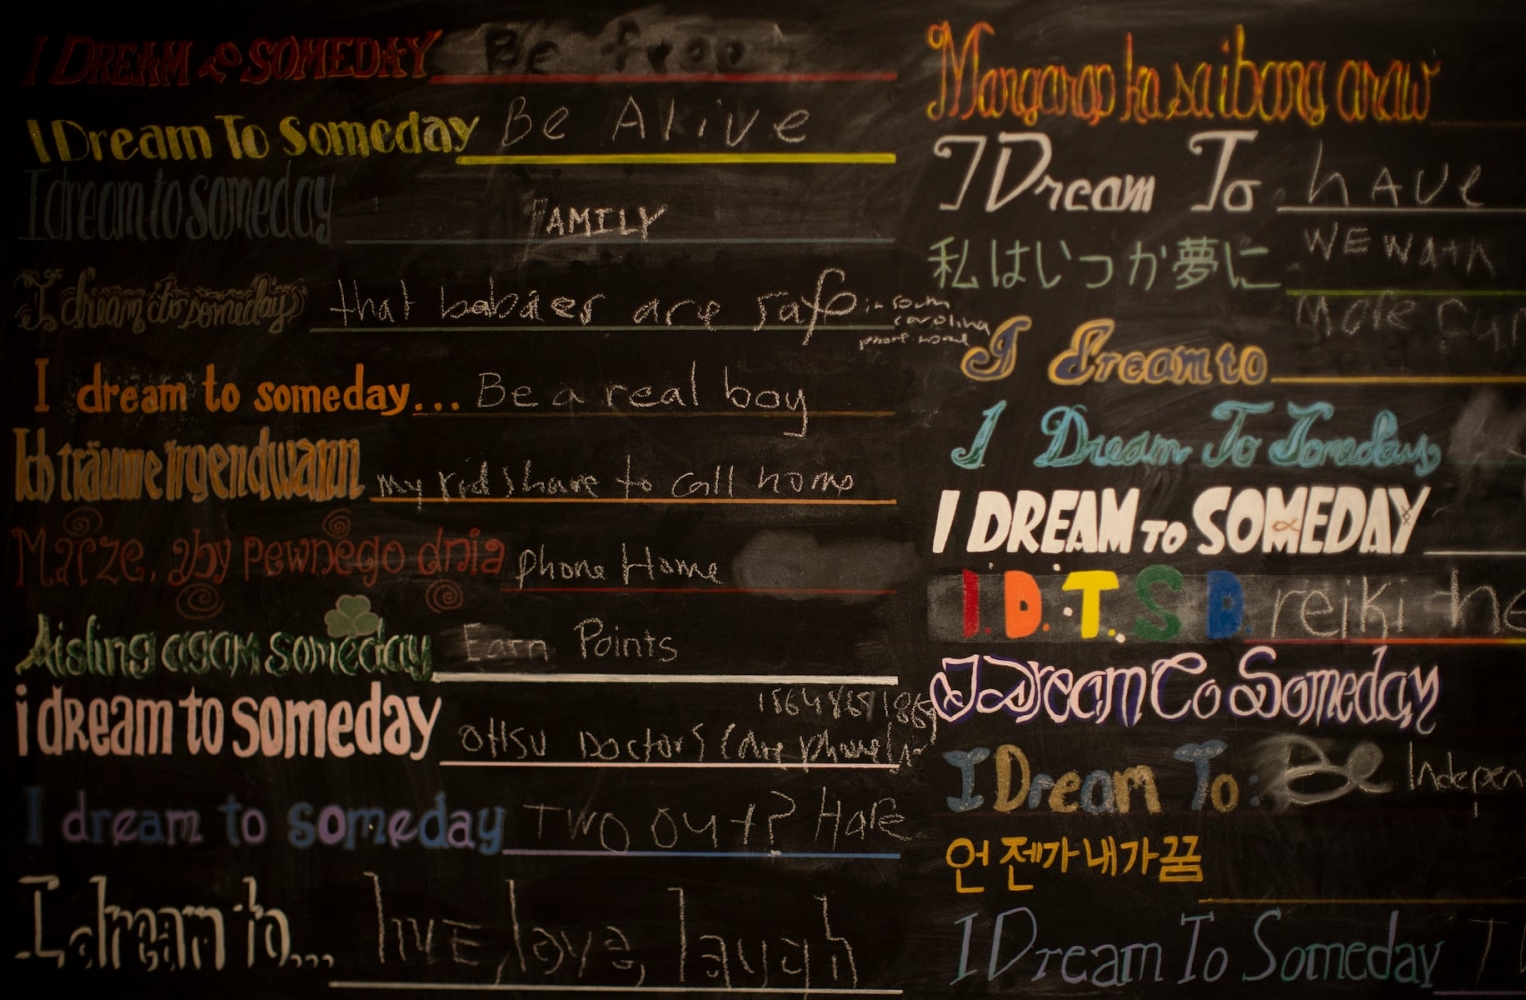 I DREAM TO SOMEDAY Be free
I Dream To Someday Be Alive
I dream to someday FAMILY
I dream to someday that babaies are safe in south carolina phone home
I dream to someday... Be a real boy
Ich träume irgendwann my kids have to call home
Marzę, aby pewnego dnia phone Home
Aisling agam someday Earn Points
i dream to someday OHSU Doctors
I dream to someday Two out? Hale
I dream to... live, love, laugh
Mangarap ka sa ibang araw
I Dream To have
私はいつか夢に WE WatH
I dream to More Fun
I Dream To Someday
I DREAM TO SOMEDAY
I. D. T. S D. reiki he
I Dream To Someday
I Dream To: Be Indepen
언젠가 내가 꿈
I Dream To Someday